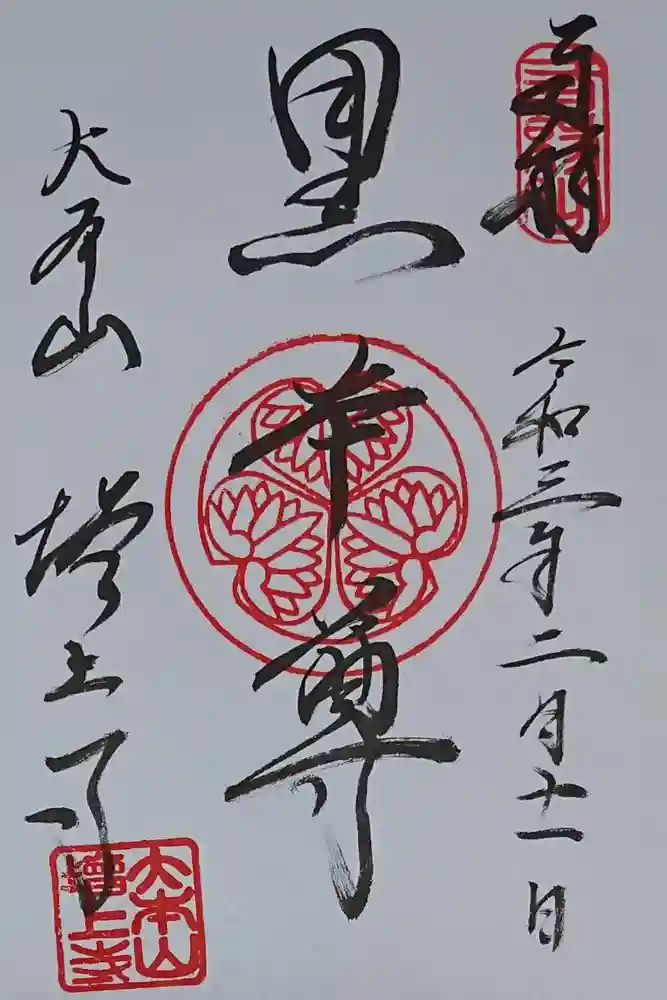 令和三年二月十一日
黒本尊
大本山
増上寺
大本山
増上寺